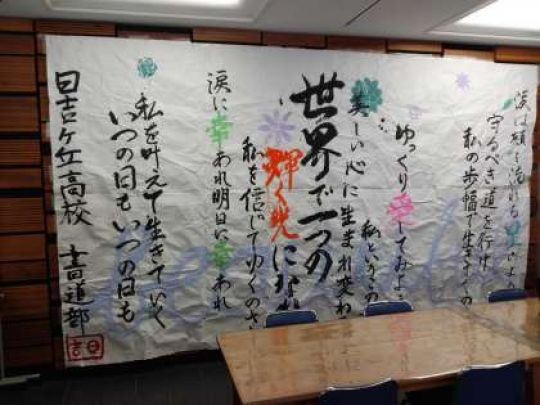 涙は頬を流れる星のよう
守るべき道を行け
私の歩幅で生きてくの
ゆっくり愛してみよう
私というこの
美しい心に生まれ変わ
世界で一つの
輝く光にな
私を信じてゆくのさ
涙に幸あれ明日に幸あれ
私を叶えて生きていく
いつの日もいつの日も
日吉ヶ丘高校 書道部
日吉